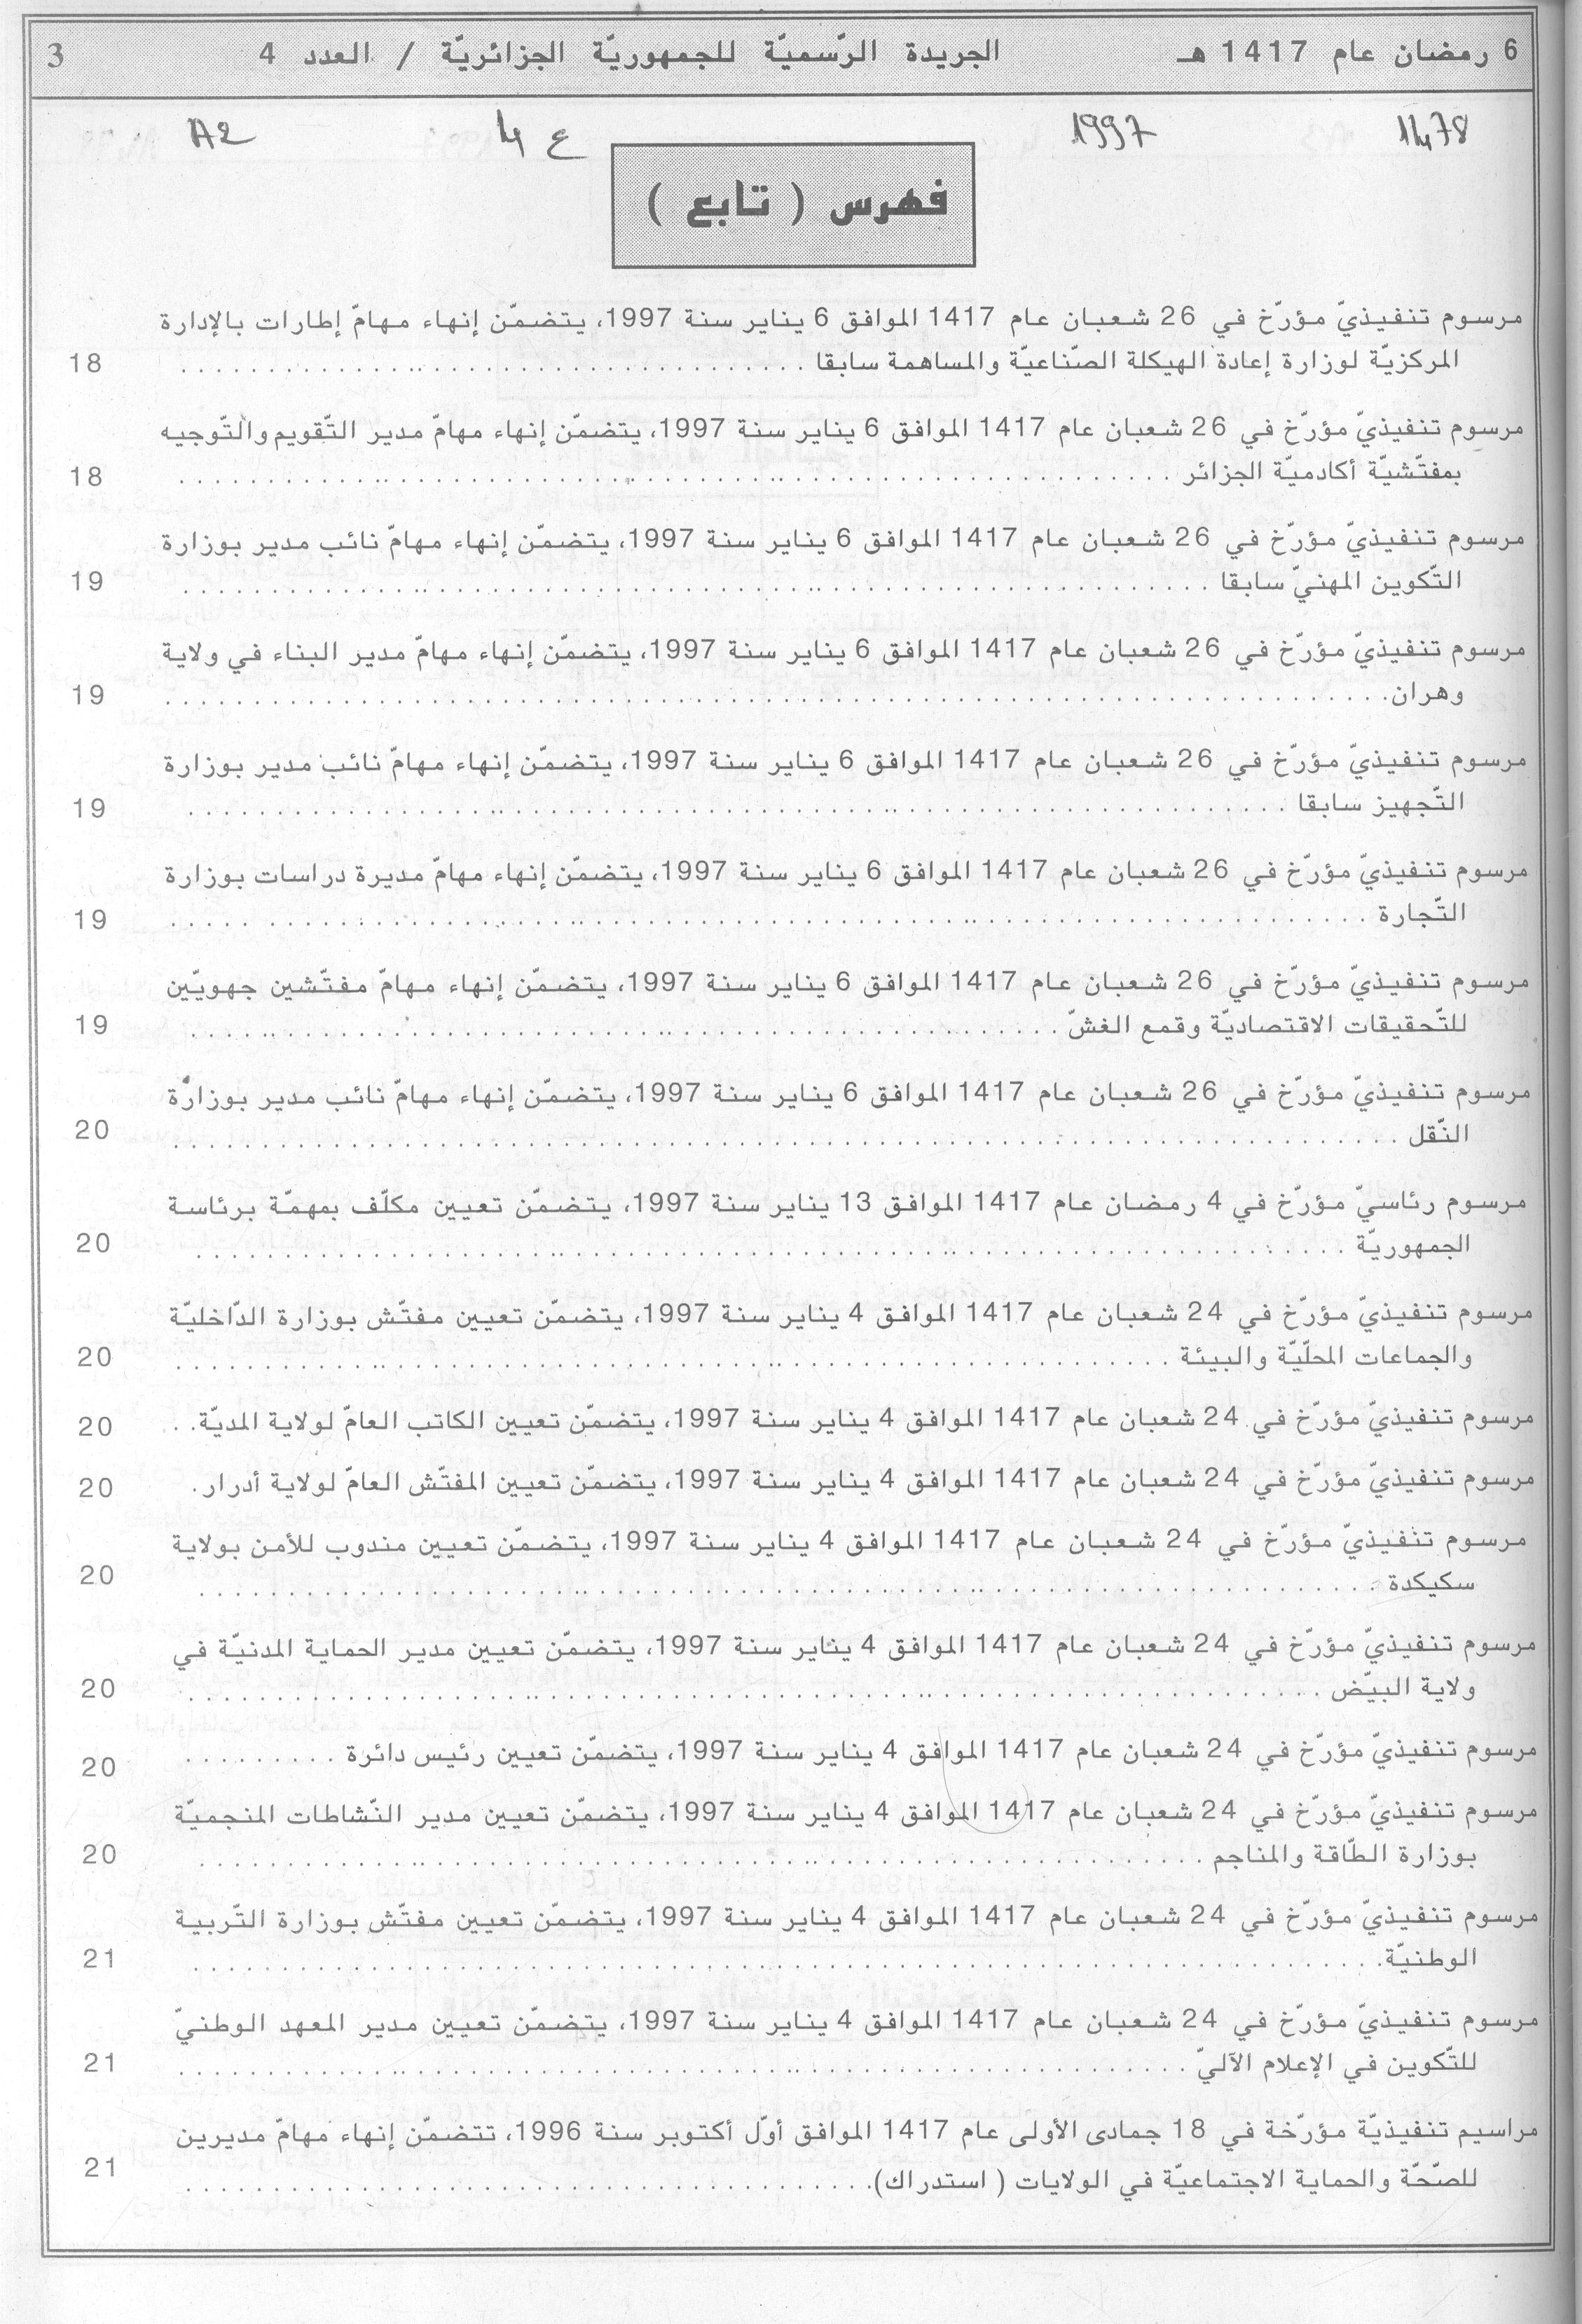 6 رمضان عام 1417 هـ
الجريدة الرّسميّة للجمهوريّة الجزائريّة / العدد 4
3
1478
1997
4 ع
A2
فهرس ( تابع )
مرسوم تنفيذيّ مؤرّخ في 26 شعبان عام 1417 الموافق 6 يناير سنة 1997، يتضمّن إنهاء مهامّ إطارات بالإدارة
المركزيّة لوزارة إعادة الهيكلة الصّناعيّة والمساهمة سابقا . . . . . . . . . . 18
مرسوم تنفيذيّ مؤرّخ في 26 شعبان عام 1417 الموافق 6 يناير سنة 1997، يتضمّن إنهاء مهامّ مدير التّقويم والتّوجيه
بمفتّشيّة أكادميّة الجزائر . . . . . . . . . . 18
مرسوم تنفيذيّ مؤرّخ في 26 شعبان عام 1417 الموافق 6 يناير سنة 1997، يتضمّن إنهاء مهامّ نائب مدير بوزارة
التّكوين المهنيّ سابقا . . . . . . . . . . 19
مرسوم تنفيذيّ مؤرّخ في 26 شعبان عام 1417 الموافق 6 يناير سنة 1997، يتضمّن إنهاء مهامّ مدير البناء في ولاية
وهران. . . . . . . . . . 19
مرسوم تنفيذيّ مؤرّخ في 26 شعبان عام 1417 الموافق 6 يناير سنة 1997، يتضمّن إنهاء مهامّ نائب مدير بوزارة
التّجهيز سابقا . . . . . . . . . . 19
مرسوم تنفيذيّ مؤرّخ في 26 شعبان عام 1417 الموافق 6 يناير سنة 1997، يتضمّن إنهاء مهامّ مديرة دراسات بوزارة
التّجارة . . . . . . . . . . 19
مرسوم تنفيذيّ مؤرّخ في 26 شعبان عام 1417 الموافق 6 يناير سنة 1997، يتضمّن إنهاء مهامّ مفتّشين جهويّين
للتّحقيقات الاقتصاديّة وقمع الغشّ . . . . . . . . . . 19
مرسوم تنفيذيّ مؤرّخ في 26 شعبان عام 1417 الموافق 6 يناير سنة 1997، يتضمّن إنهاء مهامّ نائب مدير بوزارة
النّقل . . . . . . . . . . 20
مرسوم رئاسيّ مؤرّخ في 4 رمضان عام 1417 الموافق 13 يناير سنة 1997، يتضمّن تعيين مكلّف بمهمّة برئاسة
الجمهوريّة . . . . . . . . . . 20
مرسوم تنفيذيّ مؤرّخ في 24 شعبان عام 1417 الموافق 4 يناير سنة 1997، يتضمّن تعيين مفتّش بوزارة الدّاخليّة
والجماعات المحلّيّة والبيئة . . . . . . . . . . 20
مرسوم تنفيذيّ مؤرّخ في 24 شعبان عام 1417 الموافق 4 يناير سنة 1997، يتضمّن تعيين الكاتب العامّ لولاية المديّة. . 20
مرسوم تنفيذيّ مؤرّخ في 24 شعبان عام 1417 الموافق 4 يناير سنة 1997، يتضمّن تعيين المفتّش العامّ لولاية أدرار. 20
مرسوم تنفيذيّ مؤرّخ في 24 شعبان عام 1417 الموافق 4 يناير سنة 1997، يتضمّن تعيين مندوب للأمن بولاية
سكيكدة . . . . . . . . . . 20
مرسوم تنفيذيّ مؤرّخ في 24 شعبان عام 1417 الموافق 4 يناير سنة 1997، يتضمّن تعيين مدير الحماية المدنيّة في
ولاية البيّض . . . . . . . . . . 20
مرسوم تنفيذيّ مؤرّخ في 24 شعبان عام 1417 الموافق 4 يناير سنة 1997، يتضمّن تعيين رئيس دائرة . . . . . . . . . 20
مرسوم تنفيذيّ مؤرّخ في 24 شعبان عام 1417 الموافق 4 يناير سنة 1997، يتضمّن تعيين مدير النّشاطات المنجميّة
بوزارة الطّاقة والمناجم . . . . . . . . . . 20
مرسوم تنفيذيّ مؤرّخ في 24 شعبان عام 1417 الموافق 4 يناير سنة 1997، يتضمّن تعيين مفتّش بوزارة التّربية
الوطنيّة. . . . . . . . . . 21
مرسوم تنفيذيّ مؤرّخ في 24 شعبان عام 1417 الموافق 4 يناير سنة 1997، يتضمّن تعيين مدير المعهد الوطنيّ
للتّكوين في الإعلام الآليّ . . . . . . . . . . 21
مراسيم تنفيذيّة مؤرّخة في 18 جمادى الأولى عام 1417 الموافق أوّل أكتوبر سنة 1996، تتضمّن إنهاء مهامّ مديرين
للصّحّة والحماية الاجتماعيّة في الولايات ( استدراك). . . . . . . . . . 21